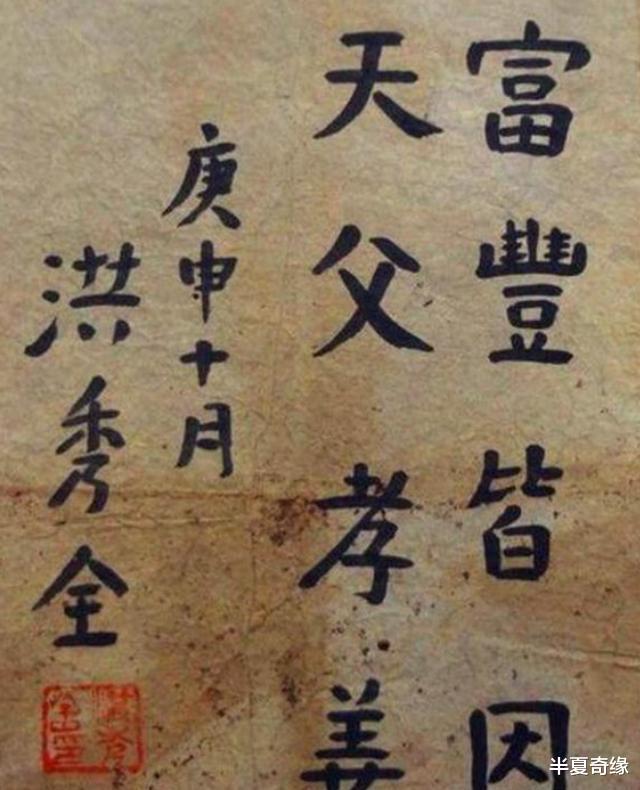 富豐皆因
天父孝善
庚申十月
洪秀全
半夏奇缘